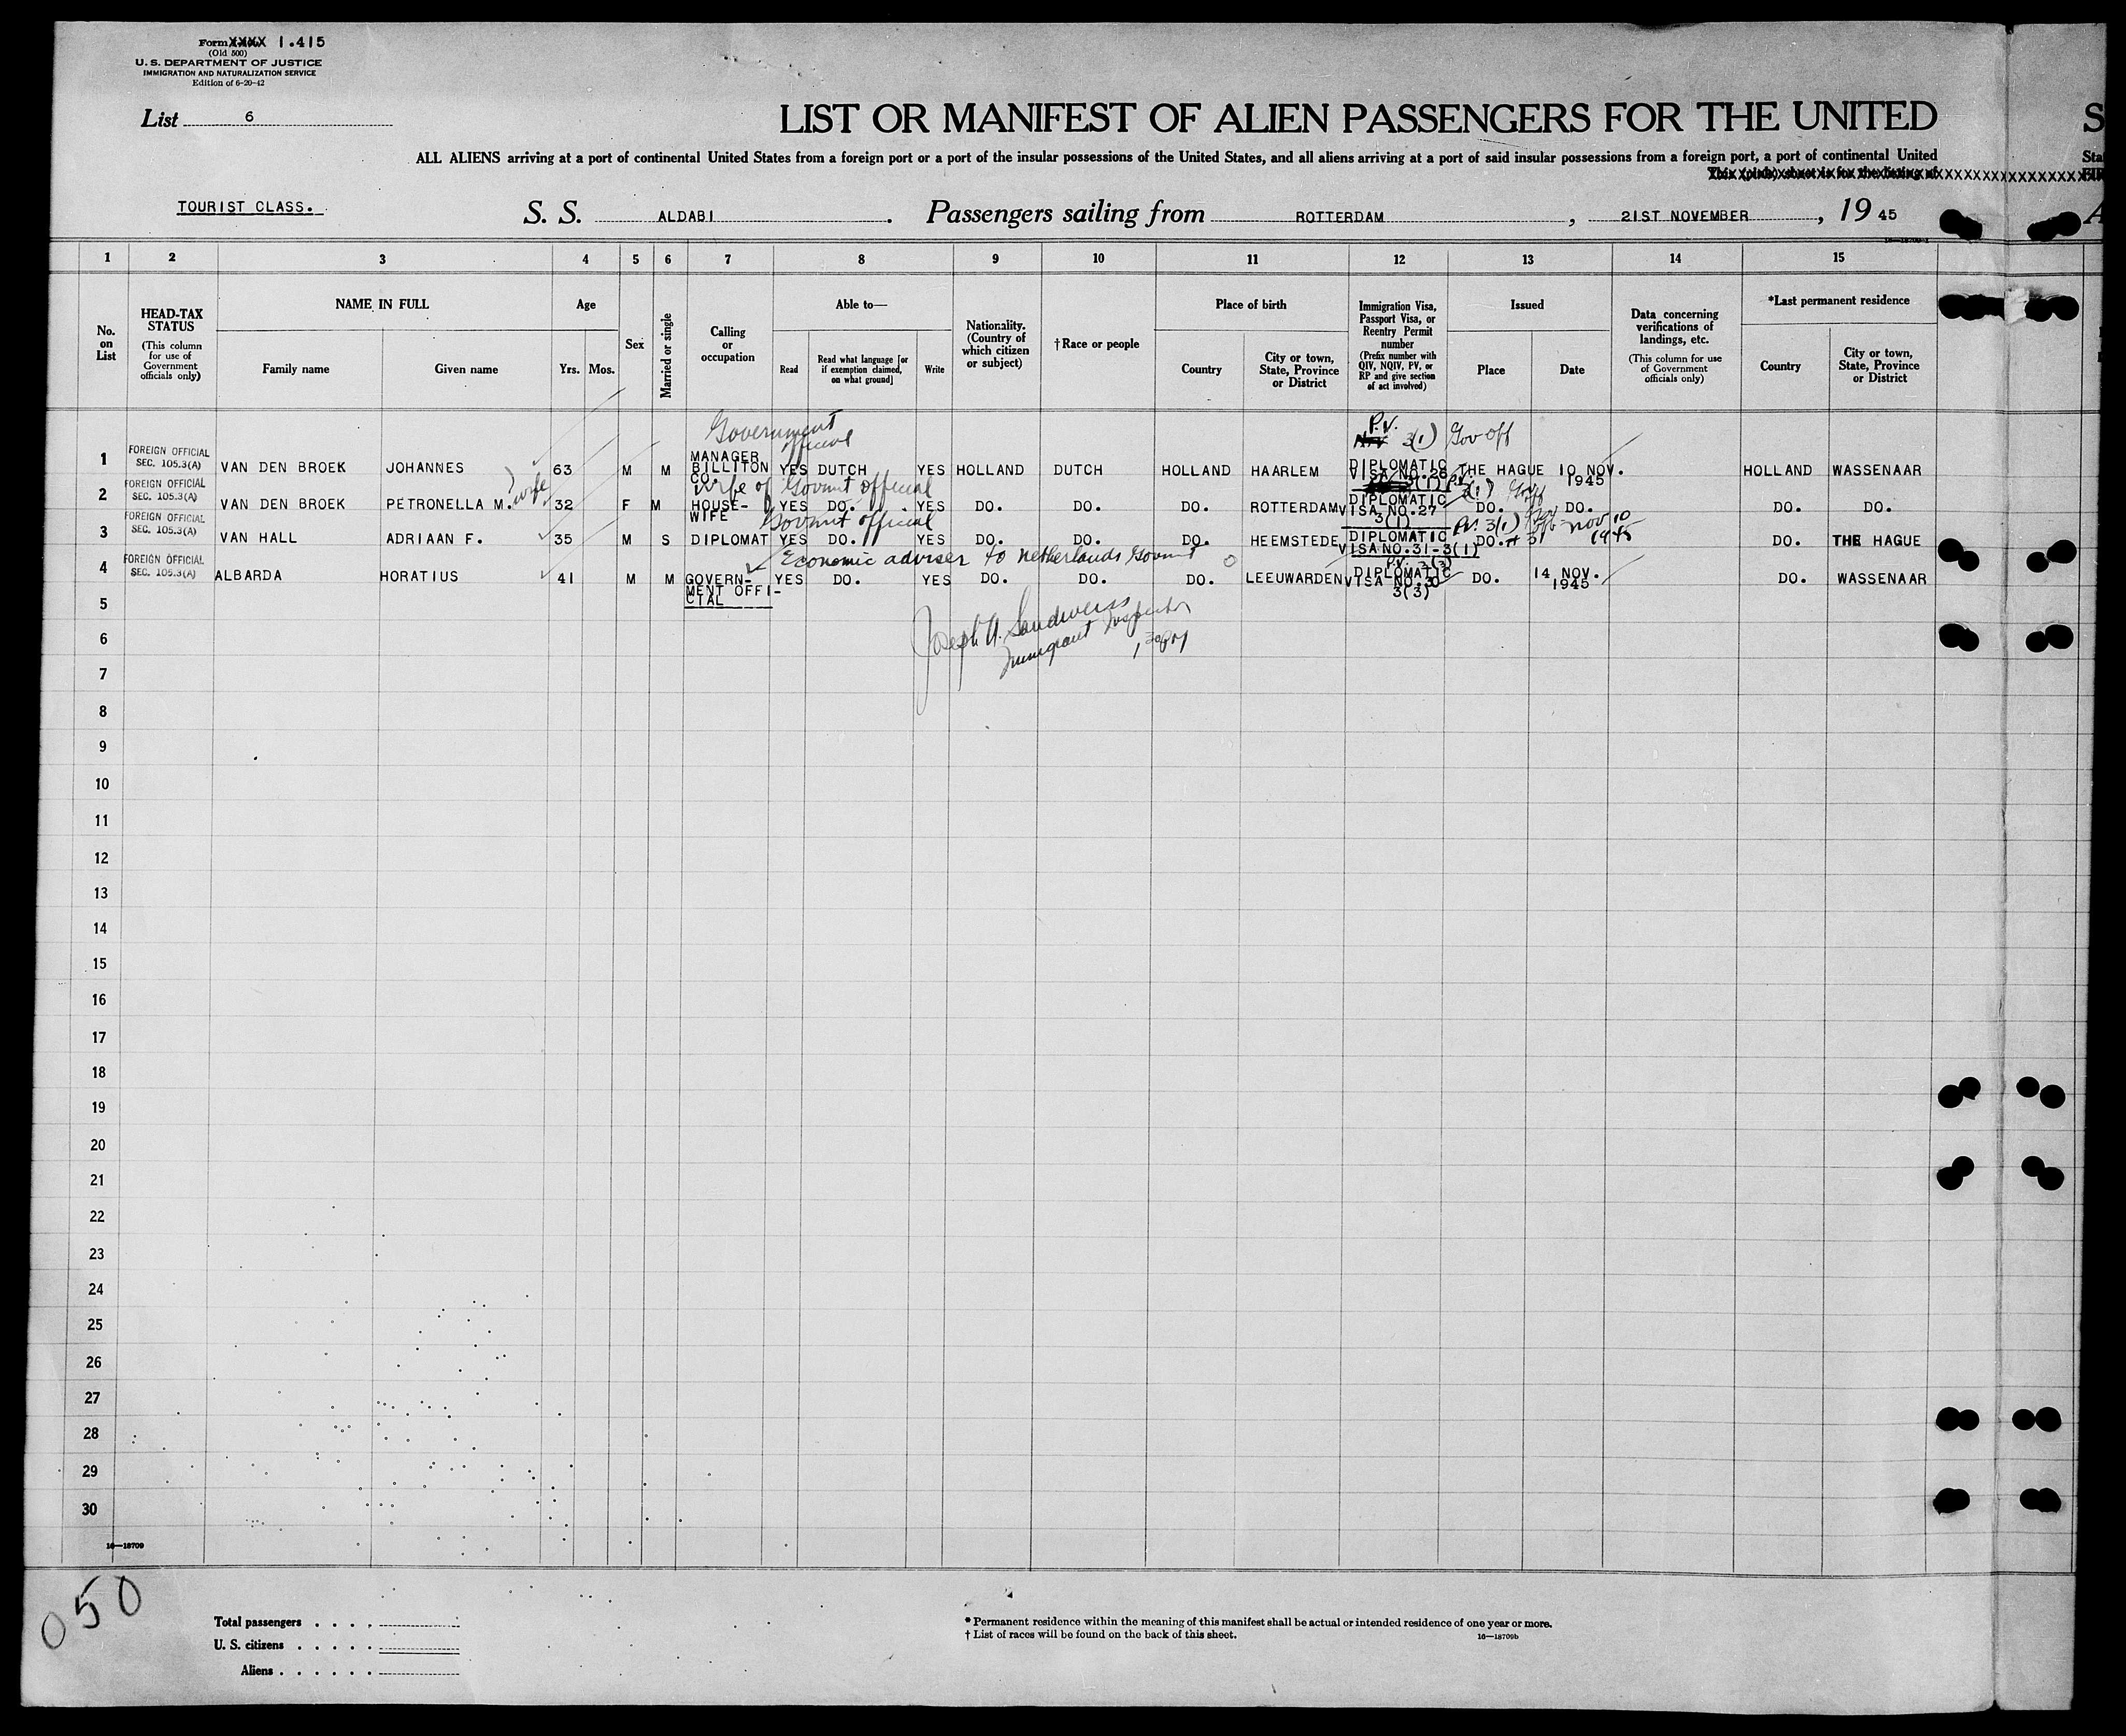 Form XXXX 1.415
(Old 500)
U. S. DEPARTMENT OF JUSTICE
IMMIGRATION AND NATURALIZATION SERVICE
Edition of 6-20-42
List 6
LIST OR MANIFEST OF ALIEN PASSENGERS FOR THE UNITED S
ALL ALIENS arriving at a port of continental United States from a foreign port or a port of the insular possessions of the United States, and all aliens arriving at a port of said insular possessions from a foreign port, a port of continental United Sta
This (pink) sheet is for the listing of
TOURIST CLASS. S. S. ALDABI . Passengers sailing from ROTTERDAM , 21ST NOVEMBER , 19 45 A
1 2 3 4 5 6 7 8 9 10 11 12 13 14 15
No. on List
HEAD-TAX STATUS (This column for use of Government officials only)
NAME IN FULL Family name Given name
Age Yrs. Mos.
Sex
Married or single
Calling or occupation
Able to— Read Read what language [or if exemption claimed, on what ground] Write
Nationality. (Country of which citizen or subject)
†Race or people
Place of birth Country City or town, State, Province or District
Immigration Visa, Passport Visa, or Reentry Permit number (Prefix number with QIV, NQIV, PV, or RP and give section of act involved)
Issued Place Date
Data concerning verifications of landings, etc. (This column for use of Government officials only)
*Last permanent residence Country City or town, State, Province or District
Government official P.V. 3(1) Gov off
1 FOREIGN OFFICIAL SEC. 105.3(A) VAN DEN BROEK JOHANNES 63 M M MANAGER BILLITON CO. YES DUTCH YES HOLLAND DUTCH HOLLAND HAARLEM DIPLOMATIC VISA NO.26 THE HAGUE 10 NOV. 1945 HOLLAND WASSENAAR
wife wife of Govmnt official 3(1)
2 FOREIGN OFFICIAL SEC. 105.3(A) VAN DEN BROEK PETRONELLA M. 32 F M HOUSE-WIFE YES DO. YES DO. DO. DO. ROTTERDAM DIPLOMATIC VISA NO.27 3(1) DO. DO. DO. DO.
Govmnt official P.V. 3(1) Nov 10 1945
3 FOREIGN OFFICIAL SEC. 105.3(A) VAN HALL ADRIAAN F. 35 M S DIPLOMAT YES DO. YES DO. DO. DO. HEEMSTEDE DIPLOMATIC VISA NO.31-3(1) DO. # 31 DO. THE HAGUE
Economic adviser to Netherlands Govmnt P.V. 3(3)
4 FOREIGN OFFICIAL SEC. 105.3(A) ALBARDA HORATIUS 41 M M GOVERN-MENT OFFI-CIAL YES DO. YES DO. DO. DO. LEEUWARDEN DIPLOMATIC VISA NO.30 3(3) DO. 14 NOV. 1945 DO. WASSENAAR
5
Joseph H. Sandweiss
6
Immigrant Inspector
7
8
9
10
11
12
13
14
15
16
17
18
19
20
21
22
23
24
25
26
27
28
29
30
16—18709
050
Total passengers . . . .
U. S. citizens . . . . .
Aliens . . . . . .
* Permanent residence within the meaning of this manifest shall be actual or intended residence of one year or more.
† List of races will be found on the back of this sheet.
16—18709b